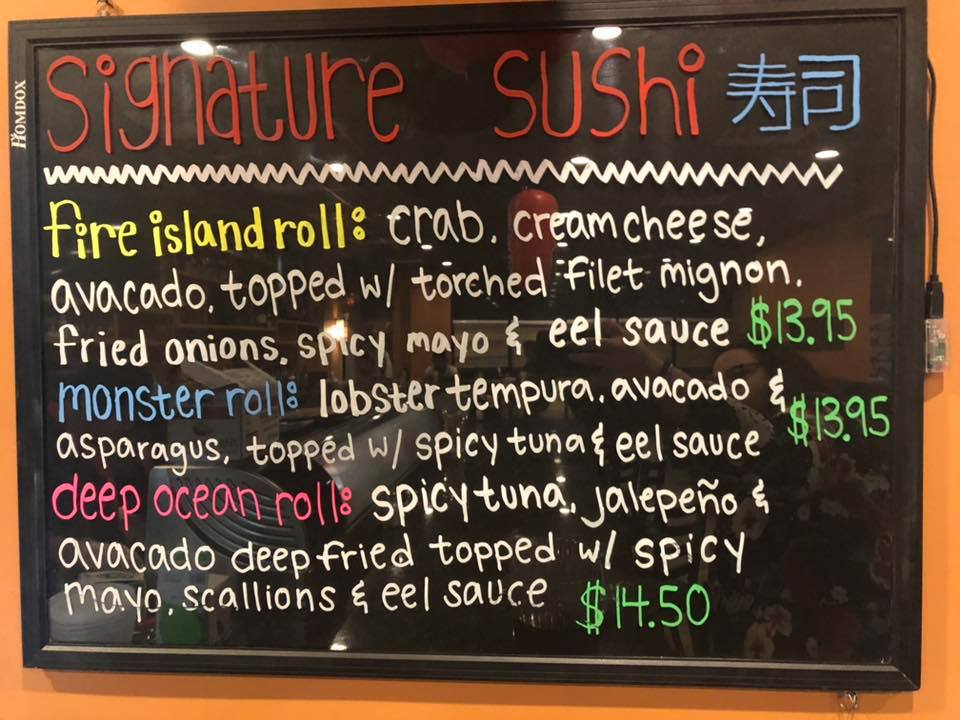 HOMDOX
Signature Sushi 寿司
fire island roll: crab, cream cheese,
avacado, topped w/ torched filet mignon,
fried onions, spicy mayo & eel sauce $13.95
monster roll: lobster tempura, avacado &
asparagus, topped w/ spicy tuna & eel sauce $13.95
deep ocean roll: spicy tuna, jalepeño &
avacado deep fried topped w/ spicy
mayo, scallions & eel sauce $14.50